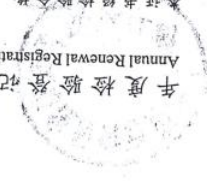 年度检验登记
Annual Renewal Registrat